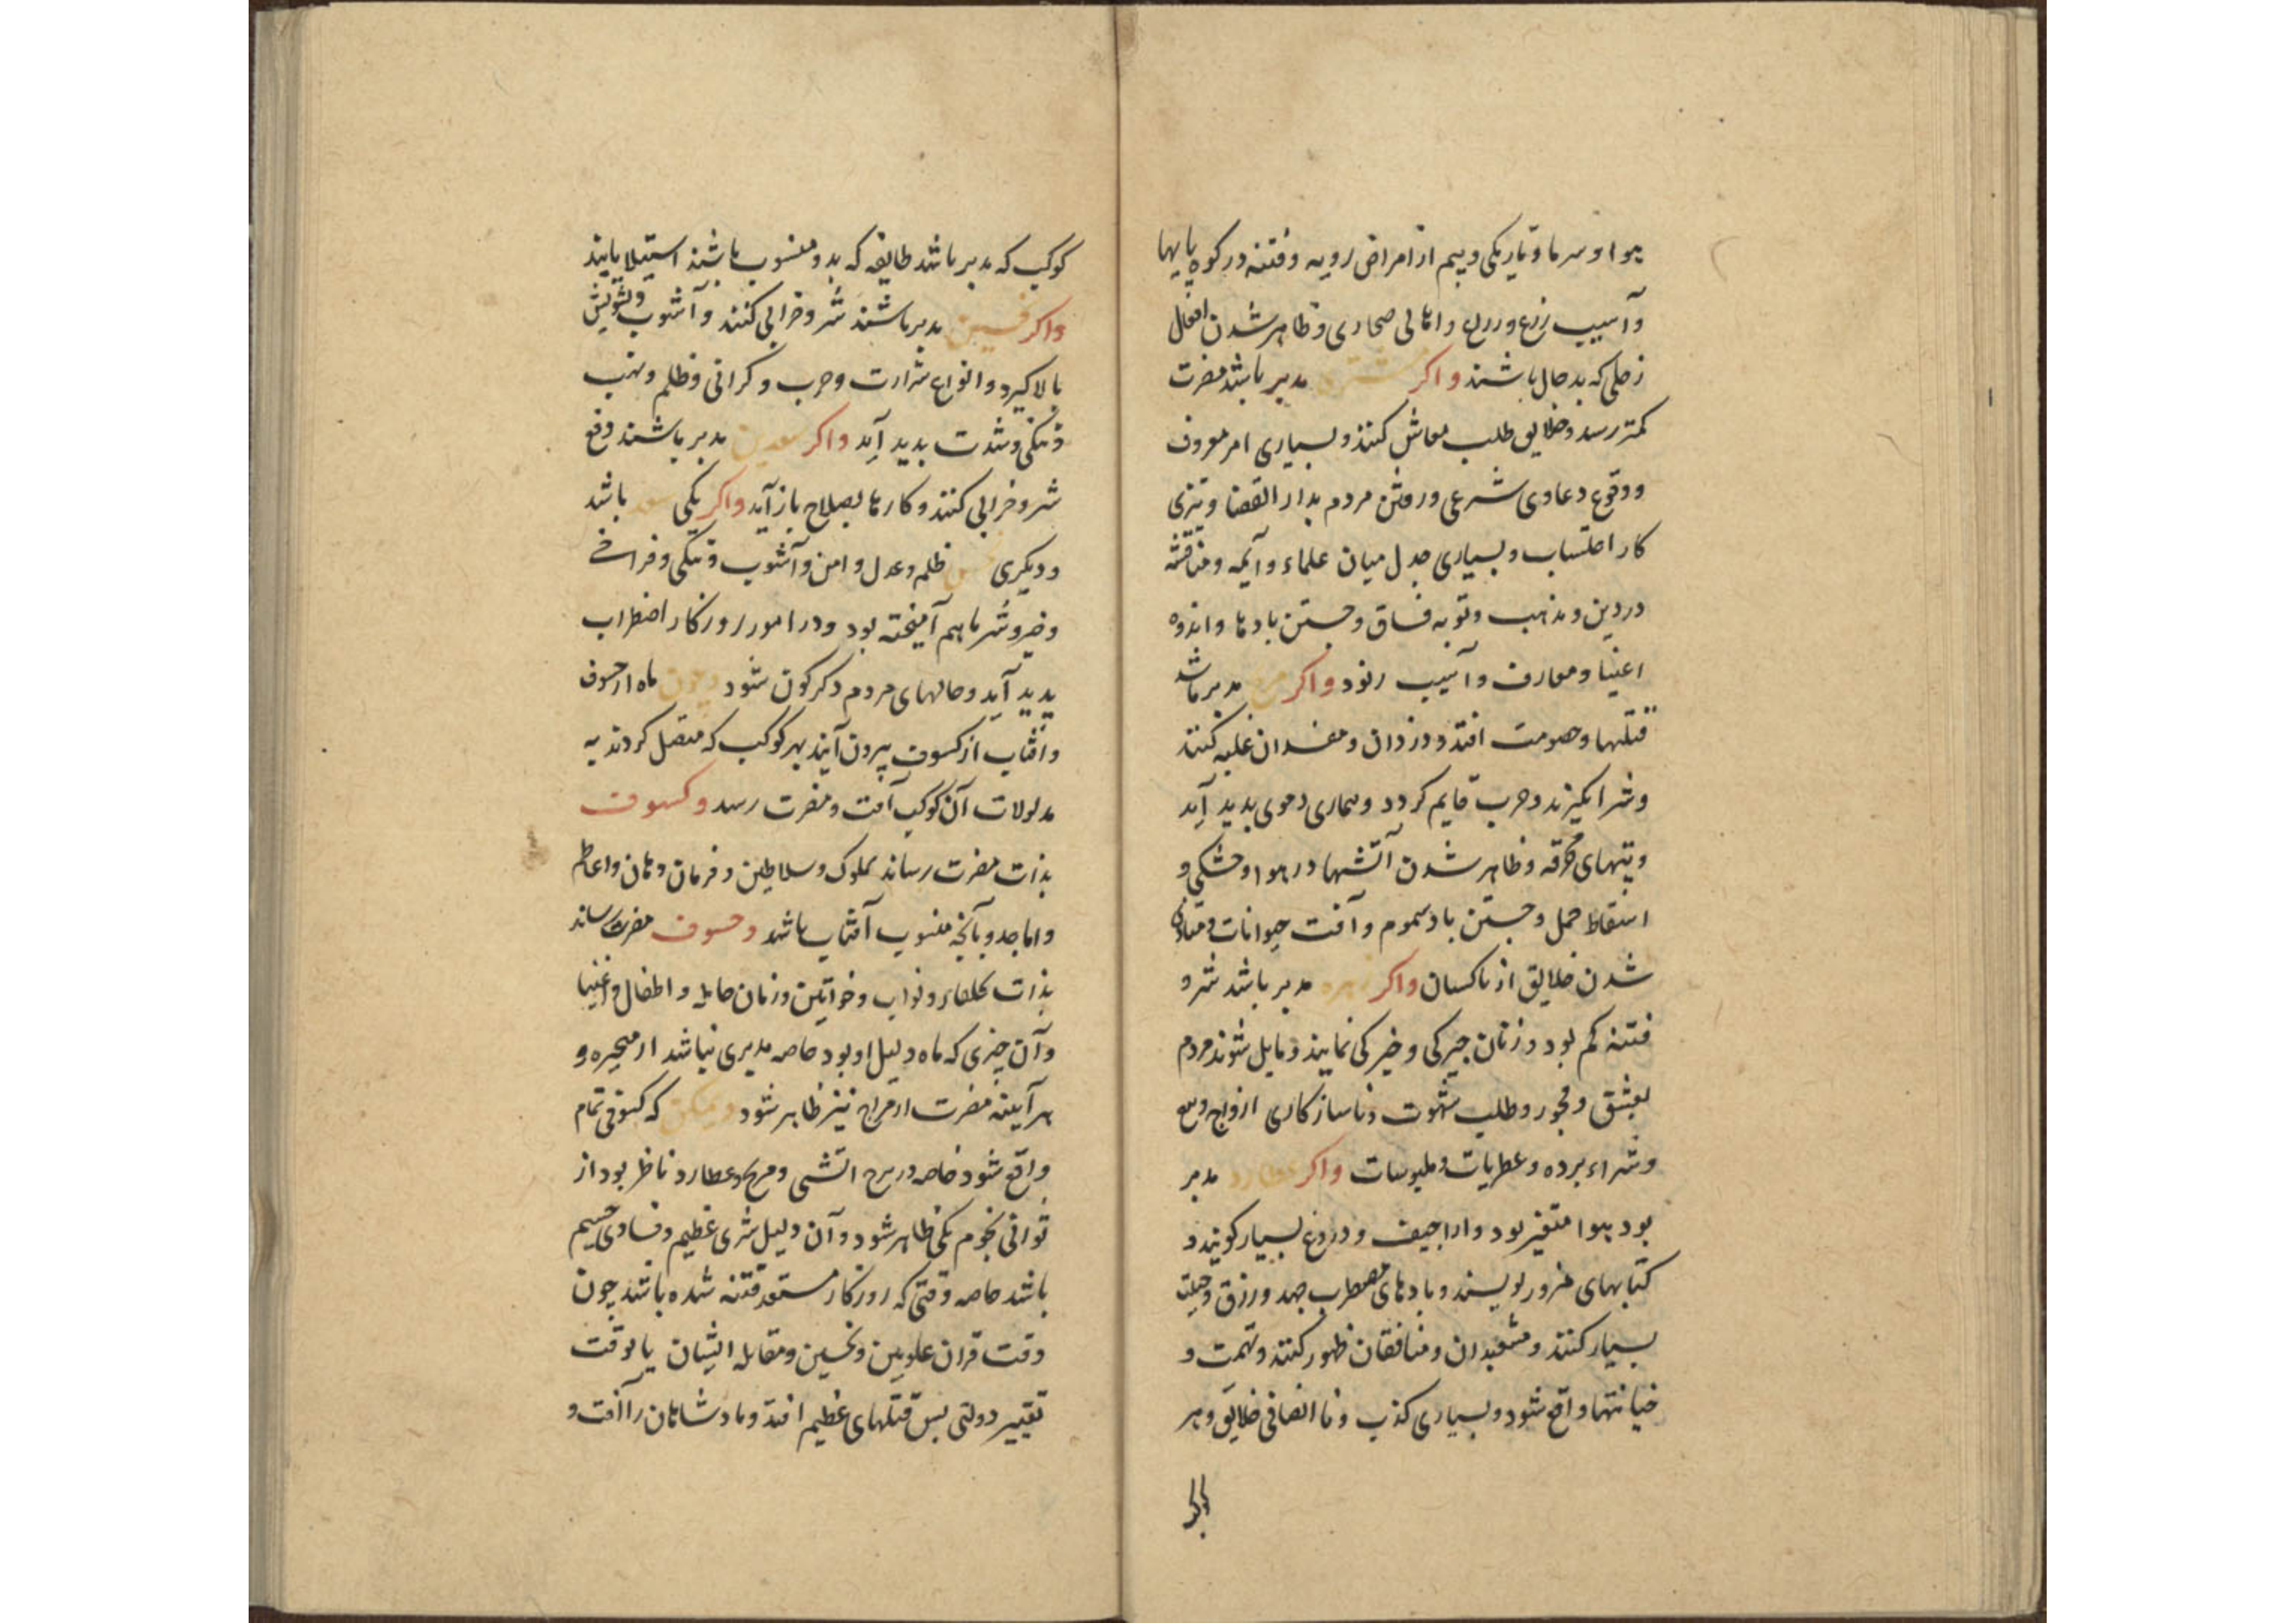 هوا و سرما و تاریکی و بیم از امراض رویه و فتنه در کوه پایها
و آسیب زرع و اهالی صحاری و ظاهر شدن افعال
زحلی که بدحال باشند واکر مشتری مدبر باشد مضرت
کمتر رسد و خلایق طلب معاش کنند و بسیاری امر معروف
و وقوع دعاوی شرعی و رفتن مردم بدار القضا و تیزی
کار احتساب و بسیاری جدل میان علماء و آئمه و مناقشه
در دین و مذهب و توبه فساق و جستن بادها و اندوه
اغنیا و معارف و آسیب واکر مریخ مدبر باشد
قتلها و خصومت افتد و دزدان و مفسدان غلبه کنند
و شر انکیزند و حرب قایم کردد و بیماری دموی بدید آید
و تبهای محرقه و ظاهر شدن آتشها در هوا و خشکی و
اسقاط حمل و جستن باد سموم و آفت حیوانات و
شدن خلایق از ناکسان واکر زهره مدبر باشد شر و
فتنه کم بود و زنان چیرکی و خیرکی نمایند و مایل شوند مردم
بعشق و فجور و طلب شهوت و ناسازکاری ازواج و بیع
و شراء برده و عطریات و ملبوسات واکر عطارد مدبر
بود هوا متغیر بود و اراجیف و دروغ بسیار کویند و
کتابهای مزور نویسند و بادهای مضطرب جهد و رزق و حیلت
بسیار کنند و مشعبدان و منافقان ظهور کنند و تهمت و
خیانتها واقع شود و بسیاری کذب و ناانصافی خلایق و هر
کوکب که مدبر باشد طایفه که بدو منسوب باشند استیلا یابند
واکر نحسین مدبر باشند شر و خرابی کنند و آشوب و تشویش
بالا کیرد و انواع شرارت و حرب و کرانی و ظلم و نهب
و تنکی و شدت بدید آید واکر سعدین مدبر باشند دفع
شر و خرابی کنند و کارها بصلاح باز آید واکر یکی سعد باشد
و دیکری نحس ظلم و عدل و امن و آشوب و تنکی و فراخی
و خیر و شر باهم آمیخته بود و در امور روزکار اضطراب
پدید آید و حالهای مردم دکرکون شود و چون ماه از خسوف
و آفتاب از کسوف بیرون آیند بهر کوکب که متصل کردند به
مدلولات آن کوکب آفت و مضرت رسد و کسوف
بذات مضرت رساند بملوک و سلاطین و فرمان دهان و اعاظم
و اماجد و بآنچه منسوب آفتاب باشد و خسوف مضرت رساند
بذات بخلفاء و نواب و خواتین و زنان حامله و اطفال و اغنیا
و آن چیزی که ماه دلیل او بود خاصه مدبری نباشد از متحیره و
هر آینه مضرت از مزاج نیز ظاهر شود و ممکن که کسوفی تمام
واقع شود خاصه در برج آتشی و مریخ و عطارد ناظر بود از
ثوانی نجوم یکی ظاهر شود و آن دلیل شری عظیم و فسادی جسیم
باشد خاصه وقتی که روزکار مستعد فتنه شده باشد چون
وقت قران علویین و نحسین و مقابله ایشان یا بوقت
تغییر دولتی بس قتلهای عظیم افتد و پادشاهان را آفت و